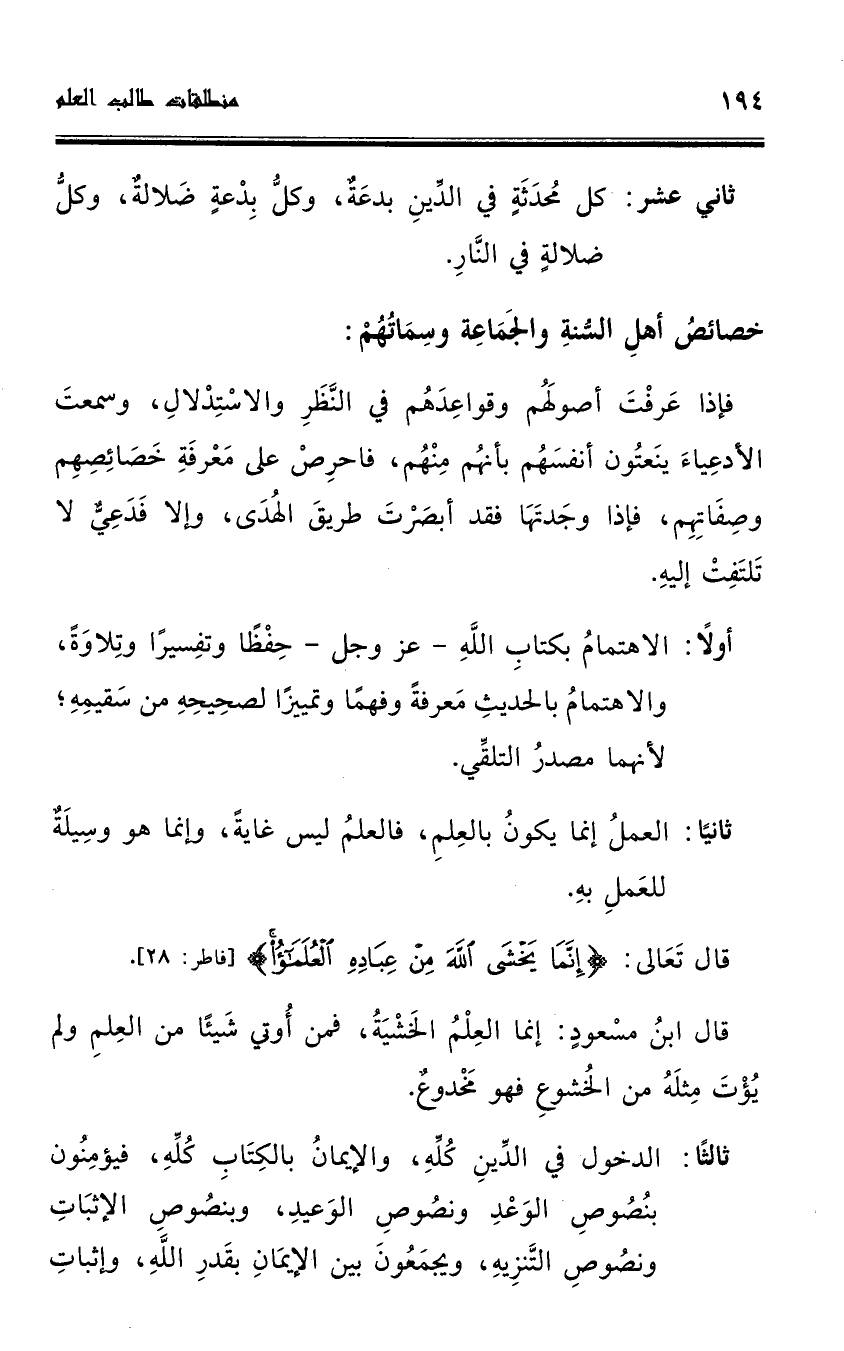 ١٩٤ منطلقات طالب العلم
ثاني عشر: كل مُحدَثَةٍ في الدِّينِ بدعَةٌ، وكلُّ بِدْعةٍ ضَلالةٌ، وكلُّ
ضلالةٍ في النَّارِ.
خصائصُ أهلِ السُّنةِ والجَمَاعِة وسِمَاتُهُمْ:
فإذا عَرفْتَ أصولَهُم وقواعِدَهُم في النَّظَرِ والاسْتِدْلالِ، وسمعتَ
الأدعِياءَ ينَعتُون أنفسَهُم بأنهُم مِنْهُم، فاحرِصْ على مَعْرفَةِ خَصَائِصِهِم
وصِفَاتِهِم، فإذا وجَدتَهَا فقد أبصَرْتَ طريقَ الهُدَى، وإلا فَدَعِيٌّ لا
تَلتَفِتْ إليهِ.
أولًا: الاهتمامُ بكتابِ اللَّهِ - عز وجل - حِفْظًا وتفسِيرًا وتِلاوَةً،
والاهتمامُ بالحديثِ مَعرفةً وفهمًا وتمييزًا لصحِيحِهِ من سَقيمِهِ؛
لأنهما مصدرُ التلقِّي.
ثانيًا: العملُ إنما يكونُ بالعِلمِ، فالعلمُ ليس غايةً، وإنما هو وسِيلَةٌ
للعَملِ بهِ.
قال تَعَالى: ﴿إِنَّمَا يَخْشَى ٱللَّهَ مِنْ عِبَادِهِ ٱلْعُلَمَٰٓؤُاْۗ﴾ [فاطر: ٢٨].
قال ابنُ مسْعودٍ: إنما العِلْمُ الخَشْيَةُ، فمن أُوتي شَيئًا من العِلمِ ولم
يُؤْتَ مِثلَهُ من الخُشوعِ فهو مَخْدوعٌ.
ثالثًا: الدخول في الدِّينِ كُلِّهِ، والإيمانُ بالكِتَابِ كُلِّهِ، فيؤمِنُون
بنُصُوصِ الوَعْدِ ونصُوصِ الوَعيدِ، وبنصُوصِ الإثبَاتِ
ونصُوصِ التَّنزِيهِ، ويجمَعُونَ بين الإيمَانِ بقَدرِ اللَّهِ، وإثباتِ